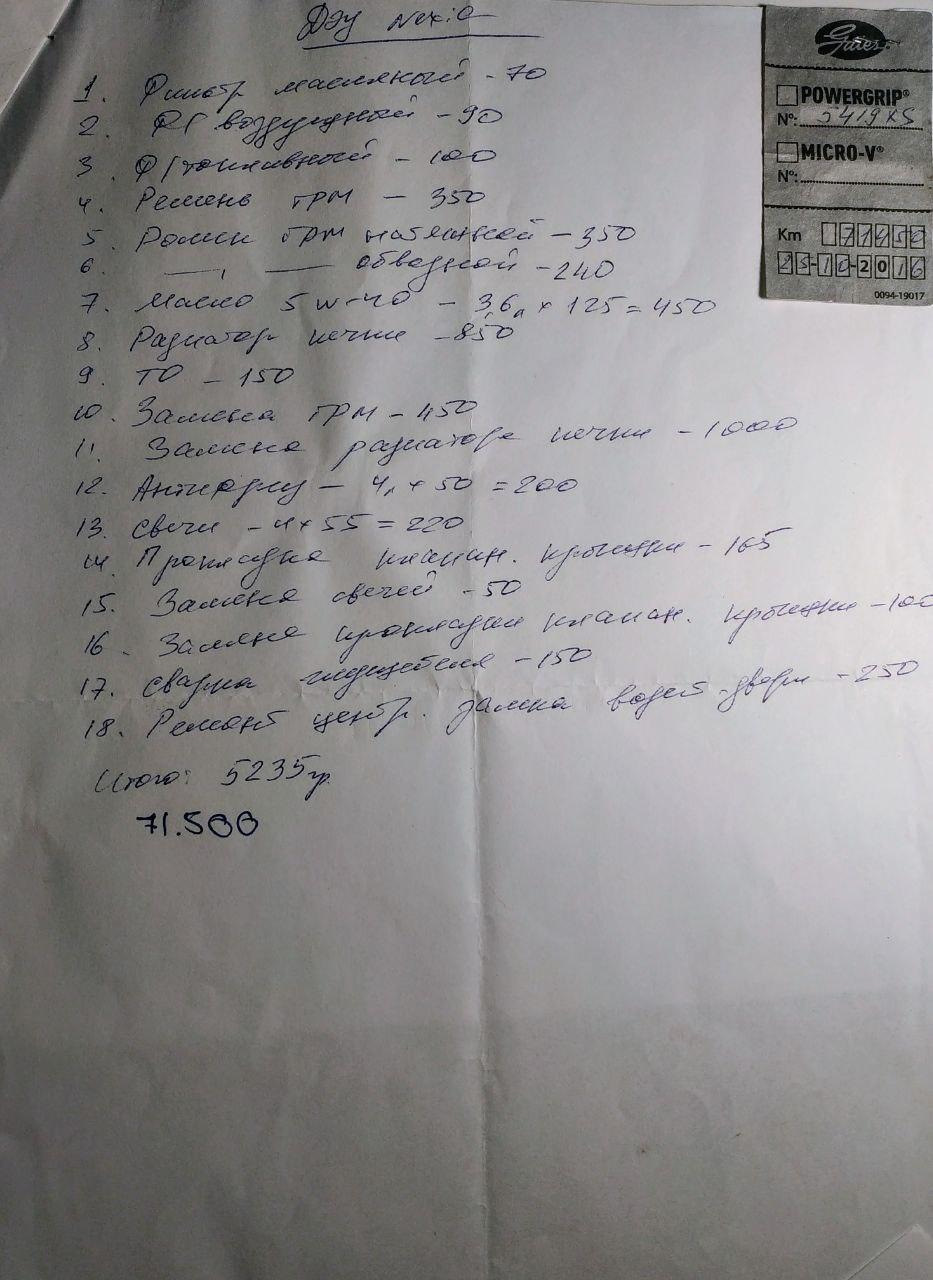 Дэу Nexia
1. Фильтр масляный - 70
2. Ф/ воздушный - 90
3. Ф/топливный - 100
4. Ремень ГРМ - 350
5. Ролик ГРМ натяжной - 350
6. —— ׀ —— обводной - 240
7. Масло 5w-40 - 3,6л × 125 = 450
8. Радиатор печки - 850
9. ТО - 150
10. Замена ГРМ - 450
11. Замена радиатора печки - 1000
12. Антифриз - 4л × 50 = 200
13. Свечи - 4 × 55 = 220
14. Прокладка клапан. крышки - 165
15. Замена свечей - 50
16. Замена прокладки клапан. крышки - 100
17. Сварка глушителя - 150
18. Ремонт центр. замка водит. двери - 250
Итого: 5235гр.
71.500
Gates
POWERGRIP®
N°: 5419XS
MICRO-V®
N°:
Km 71450
25-10-2016
0094-19017